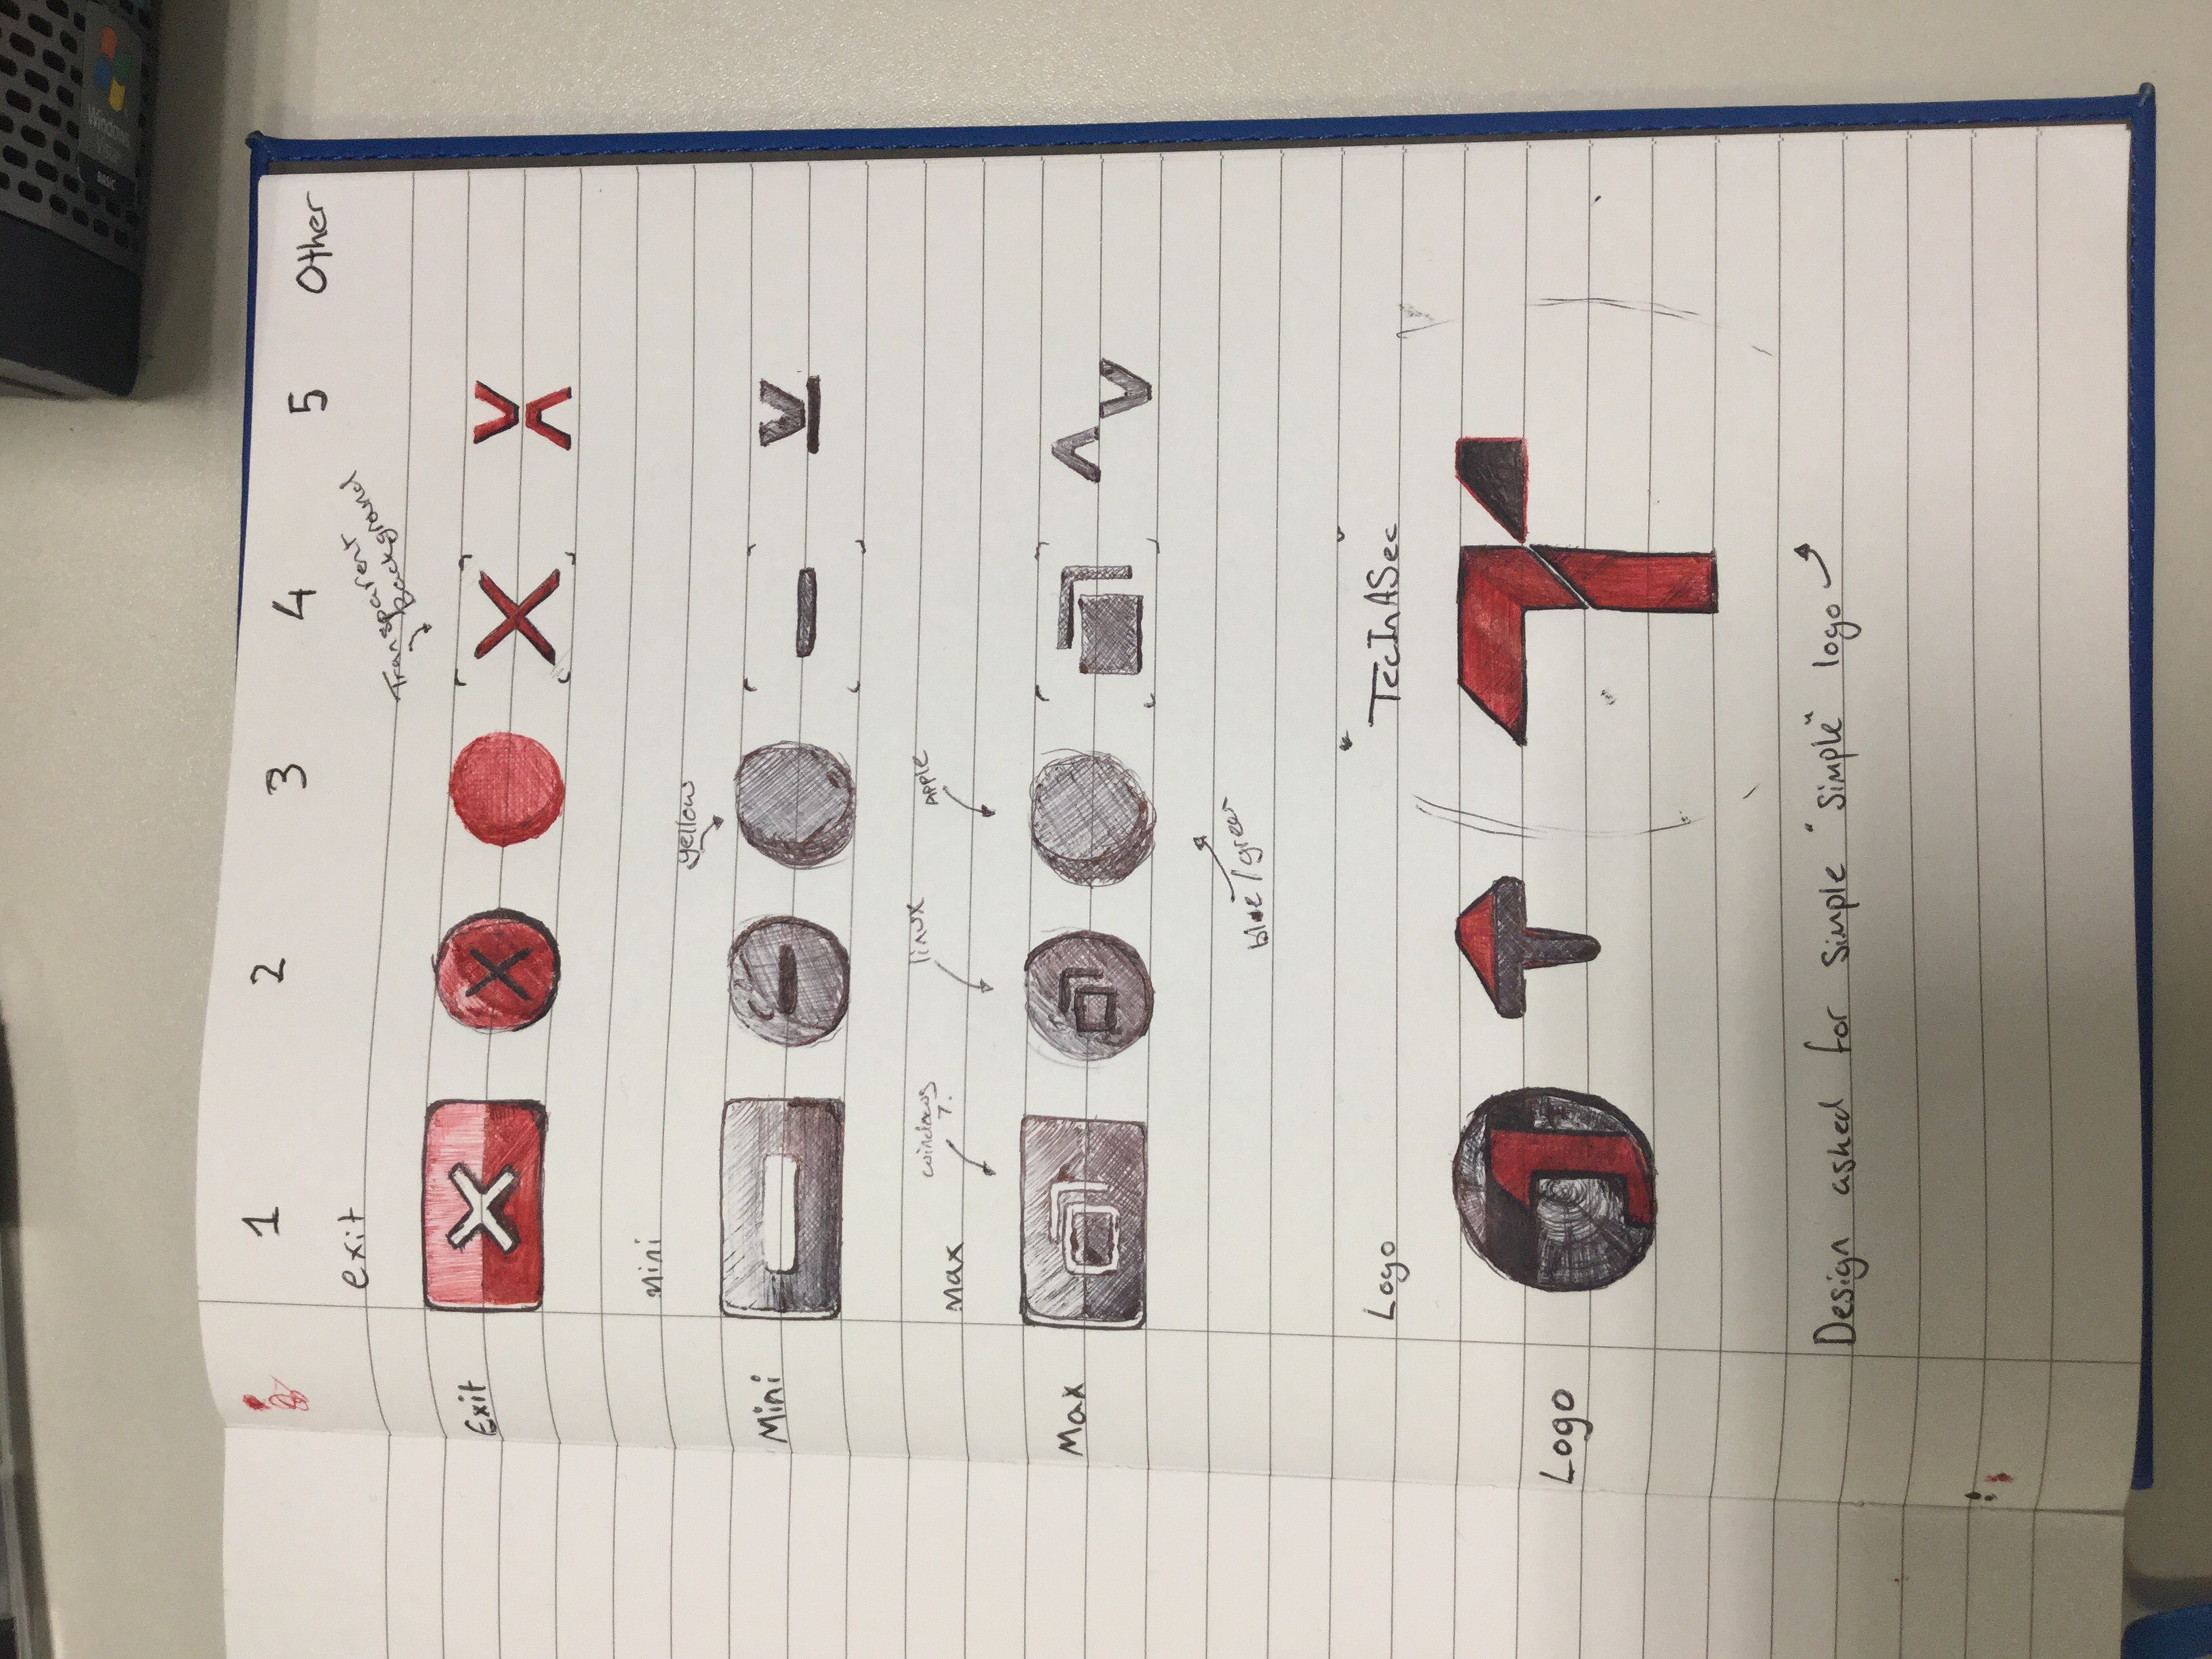 1 2 3 4 5 Other
exit
Transparent
Background
Exit
mini
yellow
Mini
windows
7.
linux
Apple
Max
Max
blue/green
Logo
TecInASec
Logo
Design asked for simple "simple" logo
Windows
BASIC